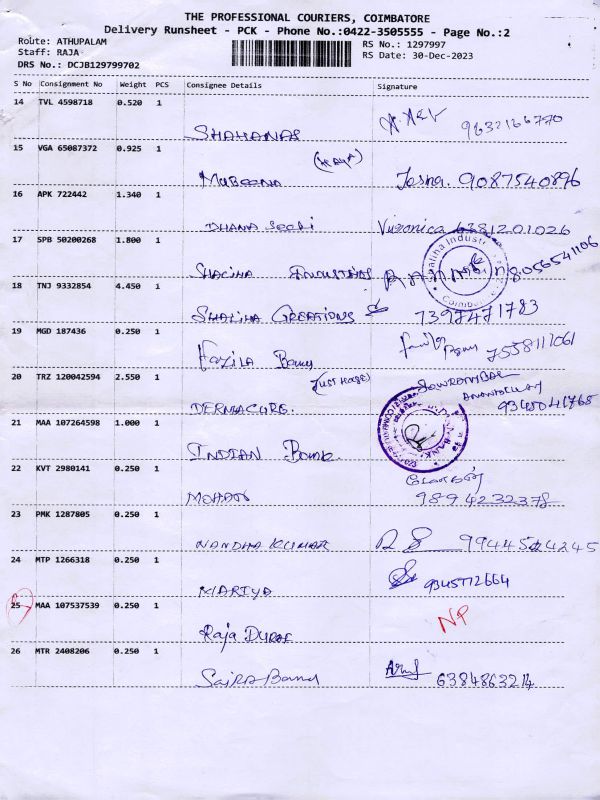 THE PROFESSIONAL COURIERS, COIMBATORE
Delivery Runsheet - PCK - Phone No.:0422-3505555 - Page No.:2
Route: ATHUPALAM
RS No.: 1297997
Staff: RAJA
RS Date: 30-Dec-2023
DRS No.: DCJB129799702
S No Consignment No Weight PCS Consignee Details Signature
14 TVL 4598718 0.520 1
SHAHANAS 9632166770
15 VGA 65087372 0.925 1
MUBEENA 9087540896
16 APK 722442 1.340 1
DHANA Veronica 6381201026
17 SPB 50200268 1.800 1
SHALIHA INDUSTRIES 8056541106
18 TNJ 9332854 4.450 1
SHALIHA CREATIONS 7397471783
19 MGD 187436 0.250 1
Fazila Banu 7558111061
20 TRZ 120042594 2.550 1
DERMACURE.
21 MAA 107264598 1.000 1
INDIAN Bank.
22 KVT 2980141 0.250 1
MOHAN 9894232378
23 PMK 1287805 0.250 1
NANDHA KUMAR
24 MTP 1266318 0.250 1
MARIYA 9345772664
25 MAA 107537539 0.250 1
NP
Raja DURAI
26 MTR 2408206 0.250 1
SaiRA Banu 6384863214